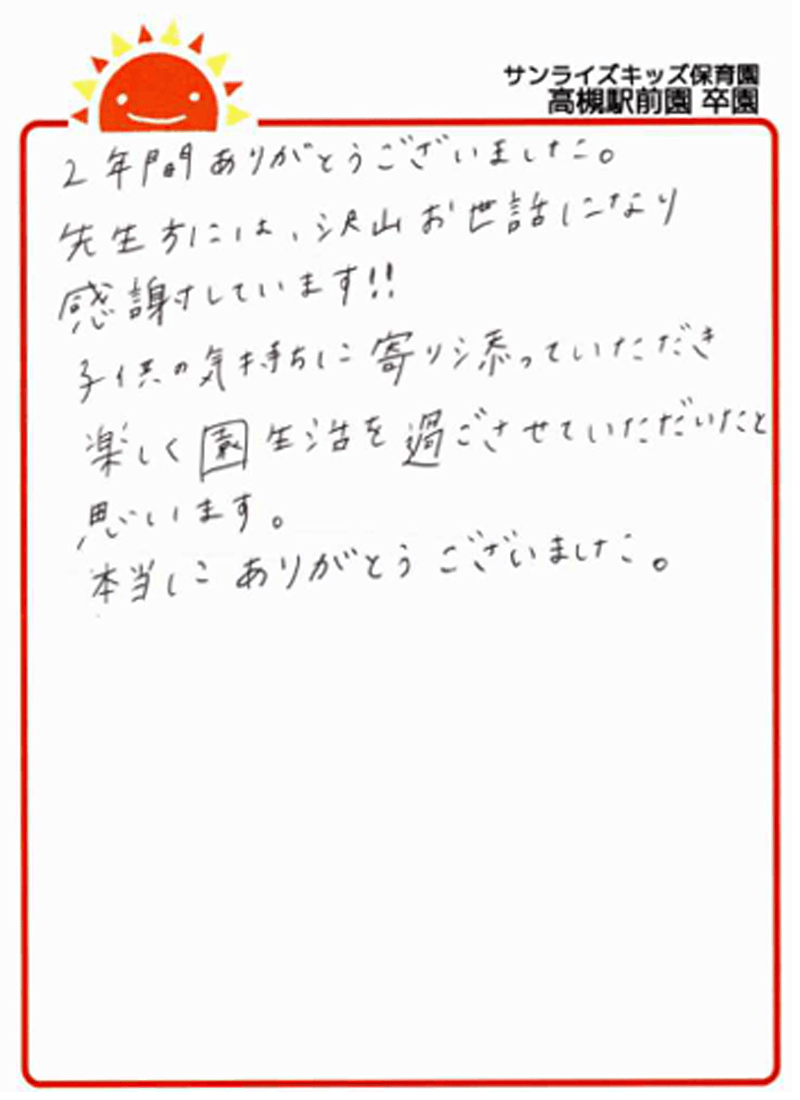 サンライズキッズ保育園
高槻駅前園 卒園
2年間ありがとうございました。
先生方には、沢山お世話になり
感謝しています!!
子供の気持ちに寄り添っていただき
楽しく園生活を過ごさせていただいたと
思います。
本当にありがとうございました。